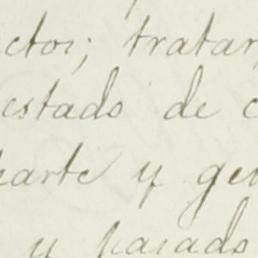 ctos; tratar
estado de c
parte y gen
y pasado